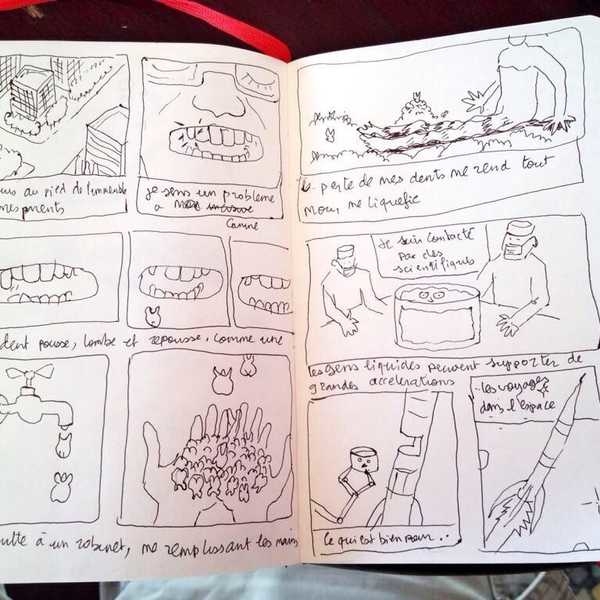 au pied de l'immeuble
mes parents
je sens un problème
à mon incisive
Canine
dent pousse, tombe et repousse, comme une
à un robinet, me remplissant les mains
perte de mes dents me rend tout
mou, me liquefie
Je suis contacté
par des
scientifiques
les gens liquides peuvent supporter de
grandes accelerations
ce qui est bien pour..
les voyages
dans l'espace